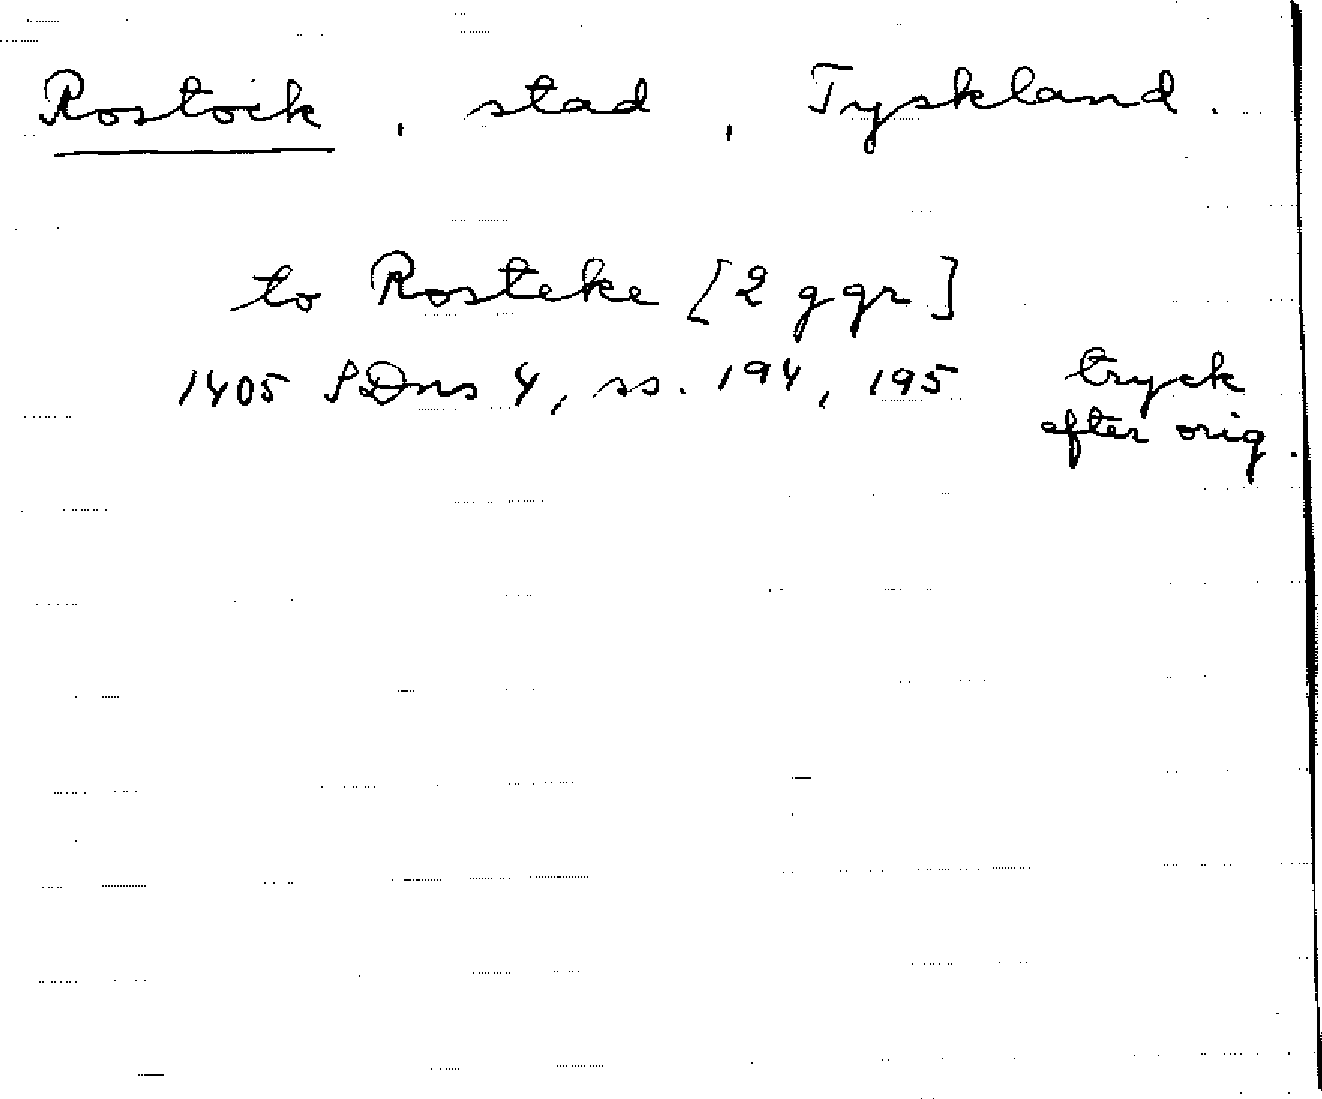 Rostock, stad, Tyskland.
to Rosteke [2 ggr]
1405 SDns 4, ss. 194, 195 tryck
efter orig.